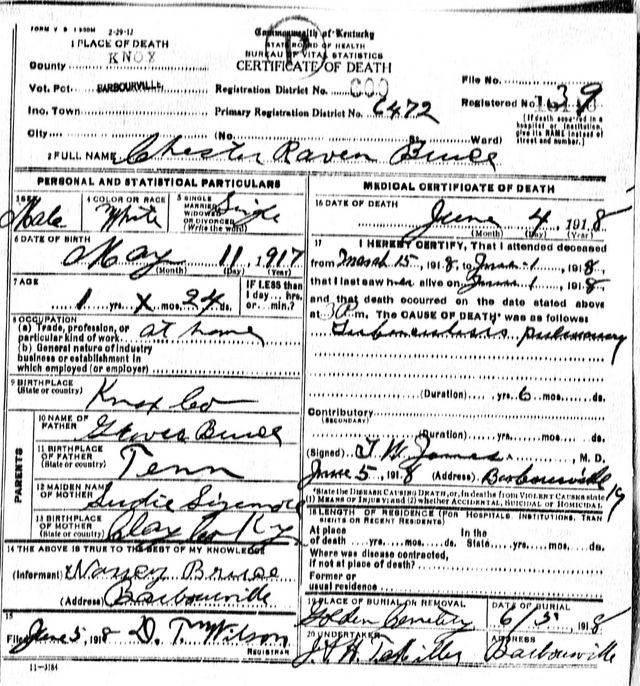 FORM V S 1 500M 2-29-12
Commonwealth of Kentucky
STATE BOARD OF HEALTH
BUREAU OF VITAL STATISTICS
CERTIFICATE OF DEATH
1 PLACE OF DEATH
County KNOX
Vot. Pct. BARBOURVILLE
Inc. Town
City (No. St. Ward)
Registration District No. 600
Primary Registration District No. 6472
File No.
Registered No. 39
[If death occurred in a hospital or institution, give its NAME instead of street and number.]
2 FULL NAME Chester Raven Bruce
PERSONAL AND STATISTICAL PARTICULARS
3 SEX Male
4 COLOR OR RACE White
5 SINGLE MARRIED WIDOWED OR DIVORCED (Write the word) Single
6 DATE OF BIRTH May 11, 1917
(Month) (Day) (Year)
7 AGE 1 yrs. X mos. 24 ds.
IF LESS than 1 day... hrs. or min.?
8 OCCUPATION
(a) Trade, profession, or particular kind of work at home
(b) General nature of industry business or establishment in which employed (or employer)
9 BIRTHPLACE (State or country) Knox Co
PARENTS
10 NAME OF FATHER Grover Bruce
11 BIRTHPLACE OF FATHER (State or country) Tenn
12 MAIDEN NAME OF MOTHER Sizemore
13 BIRTHPLACE OF MOTHER (State or country) Clay Co Ky
14 THE ABOVE IS TRUE TO THE BEST OF MY KNOWLEDGE
(Informant) Bruce
(Address) Barbourville
15
Filed June 5, 1918 D. T. Wilson
REGISTRAR
11-3184
MEDICAL CERTIFICATE OF DEATH
16 DATE OF DEATH June 4 1918
(Month) (Day) (Year)
17 I HEREBY CERTIFY, That I attended deceased
from March 15, 1918, to June 1, 1918,
that I last saw her alive on June 1, 1918,
and that death occurred on the date stated above
at 3 m. The CAUSE OF DEATH was as follows:
Tuberculosis pulmonary
(Duration) yrs. 6 mos. ds.
Contributory
(SECONDARY)
(Duration) yrs. mos. ds.
(Signed) , M. D.
June 5, 1918 (Address) Barbourville Ky
*State the DISEASE CAUSING DEATH, or, in deaths from VIOLENT CAUSES state (1) MEANS OF INJURY; and (2) whether ACCIDENTAL, SUICIDAL or HOMICIDAL
18 LENGTH OF RESIDENCE (FOR HOSPITALS, INSTITUTIONS, TRANSIENTS OR RECENT RESIDENTS)
At place of death yrs. mos. ds. In the State yrs. mos. ds.
Where was disease contracted, if not at place of death?
Former or usual residence
19 PLACE OF BURIAL OR REMOVAL Cemetery
DATE OF BURIAL 6/5 1918
20 UNDERTAKER
ADDRESS Barbourville